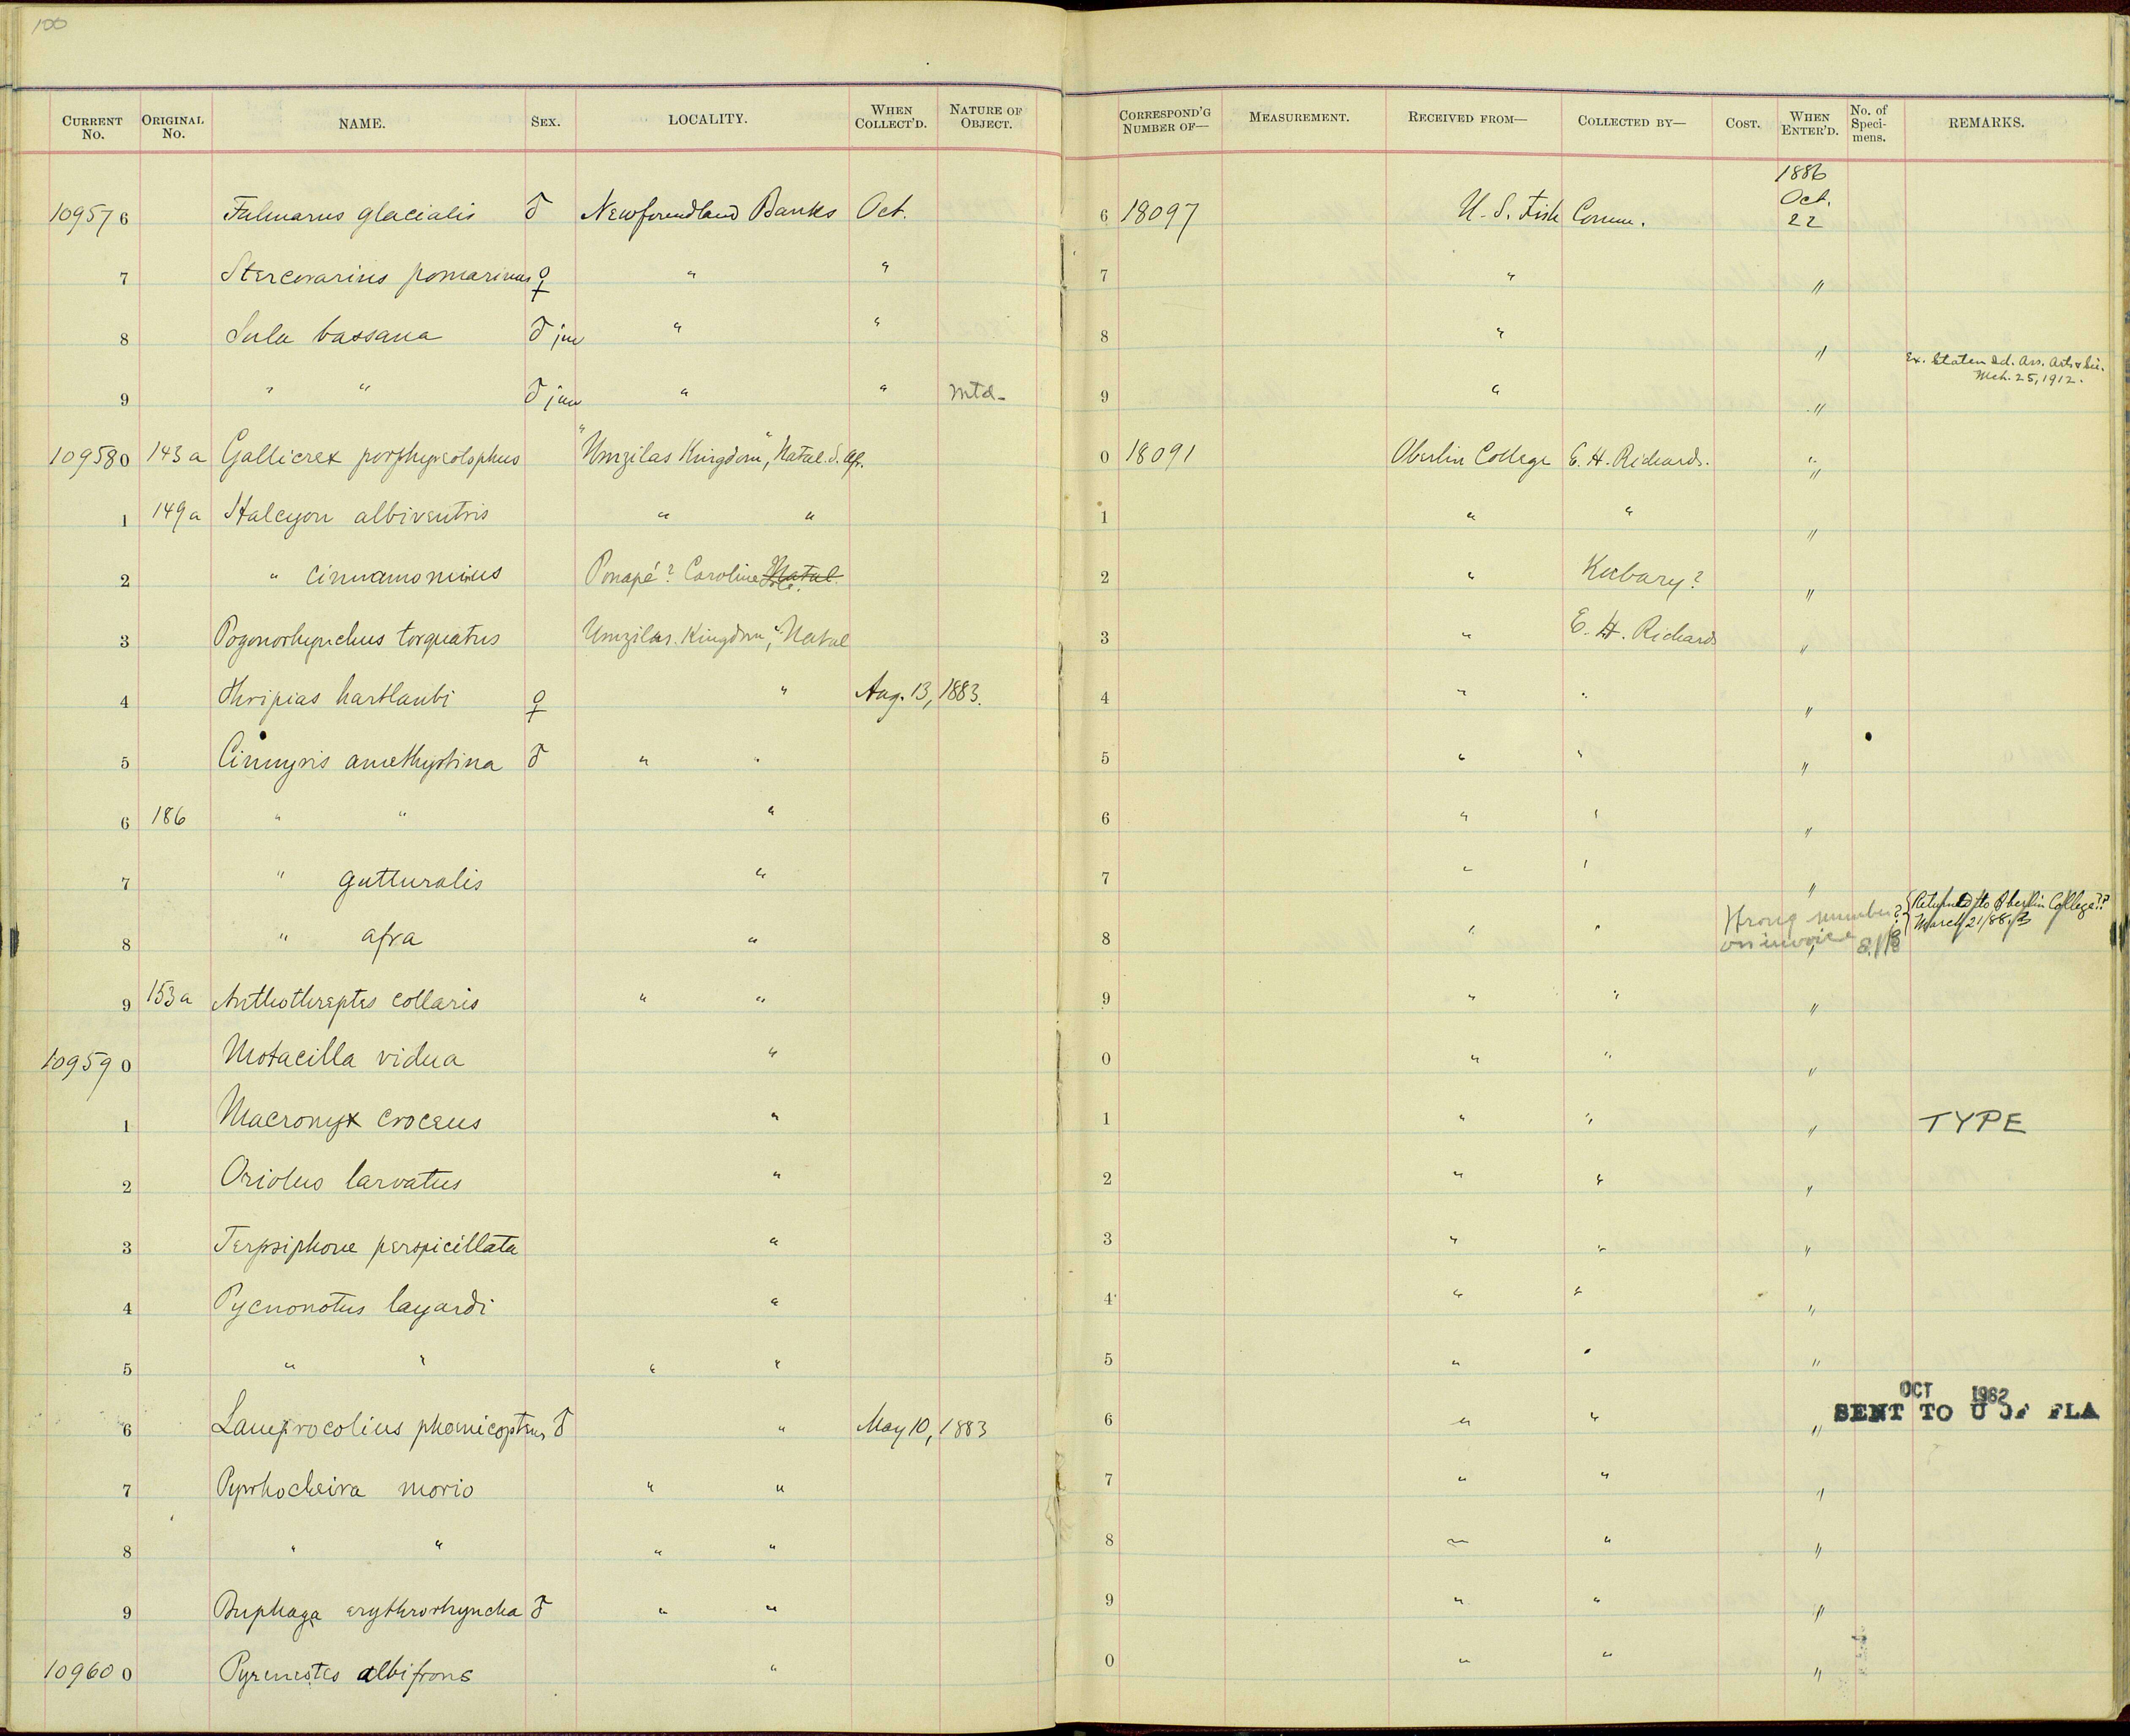 100
CURRENT No. ORIGINAL No. NAME. SEX. LOCALITY. WHEN COLLECT'D. NATURE OF OBJECT. CORRESPOND'G NUMBER OF— MEASUREMENT. RECEIVED FROM— COLLECTED BY— COST. WHEN ENTER'D. No. of Speci-mens. REMARKS.
1886
109576 Fulmarus glacialis ♂ Newfoundland Banks Oct. 6 18097 U. S. Fish Comm. Oct. 22
7 Stercorarius pomarinus ♀ " " 7 " "
8 Sula bassana ♂ juv " " 8 " "
Ex. Staten Isd. Ass. Arts & Sci. Mch. 25, 1912.
9 " " ♂ juv " " Mtd- 9 " "
109580 143a Gallicrex porphyreolophus "Umzilas Kingdom", Natal. S. Afr. 0 18091 Oberlin College E. H. Richards. "
1 149a Halcyon albiventris " " 1 " " "
2 " cinnamominus Ponapé? Caroline Ids. Natal. 2 " Kubary? "
3 Pogonorhynchus torquatus Umzilas Kingdom," Natal 3 " E. H. Richards "
4 Thripias hartlaubi ♀ " Aug. 13, 1883. 4 " " "
5 Cinnyris amethystina ♂ " " 5 " " "
6 186 " " " 6 " " "
7 " gutturalis " 7 " " "
8 " afra " 8 " " Wrong number? on invoice " {Returned to Oberlin College?? March 21/88.
9 153a Anthothreptes collaris " " 9 " " "
109590 Motacilla vidua " 0 " " "
1 Macronyx croceus " 1 " " " TYPE
2 Oriolus larvatus " 2 " " "
3 Terpsiphone perspicillata " 3 " " "
4 Pycnonotus layardi " 4 " " "
5 " " " " 5 " " "
OCT 1962
6 Lamprocolius phoenicopterus ♂ " May 10, 1883 6 " " " SENT TO U OF FLA
7 Pyrrhocheira morio " " 7 " " "
8 " " " " 8 " " "
9 Buphaga erythrorhyncha ♂ " " 9 " " "
109600 Pyrenestes albifrons " 0 " " "